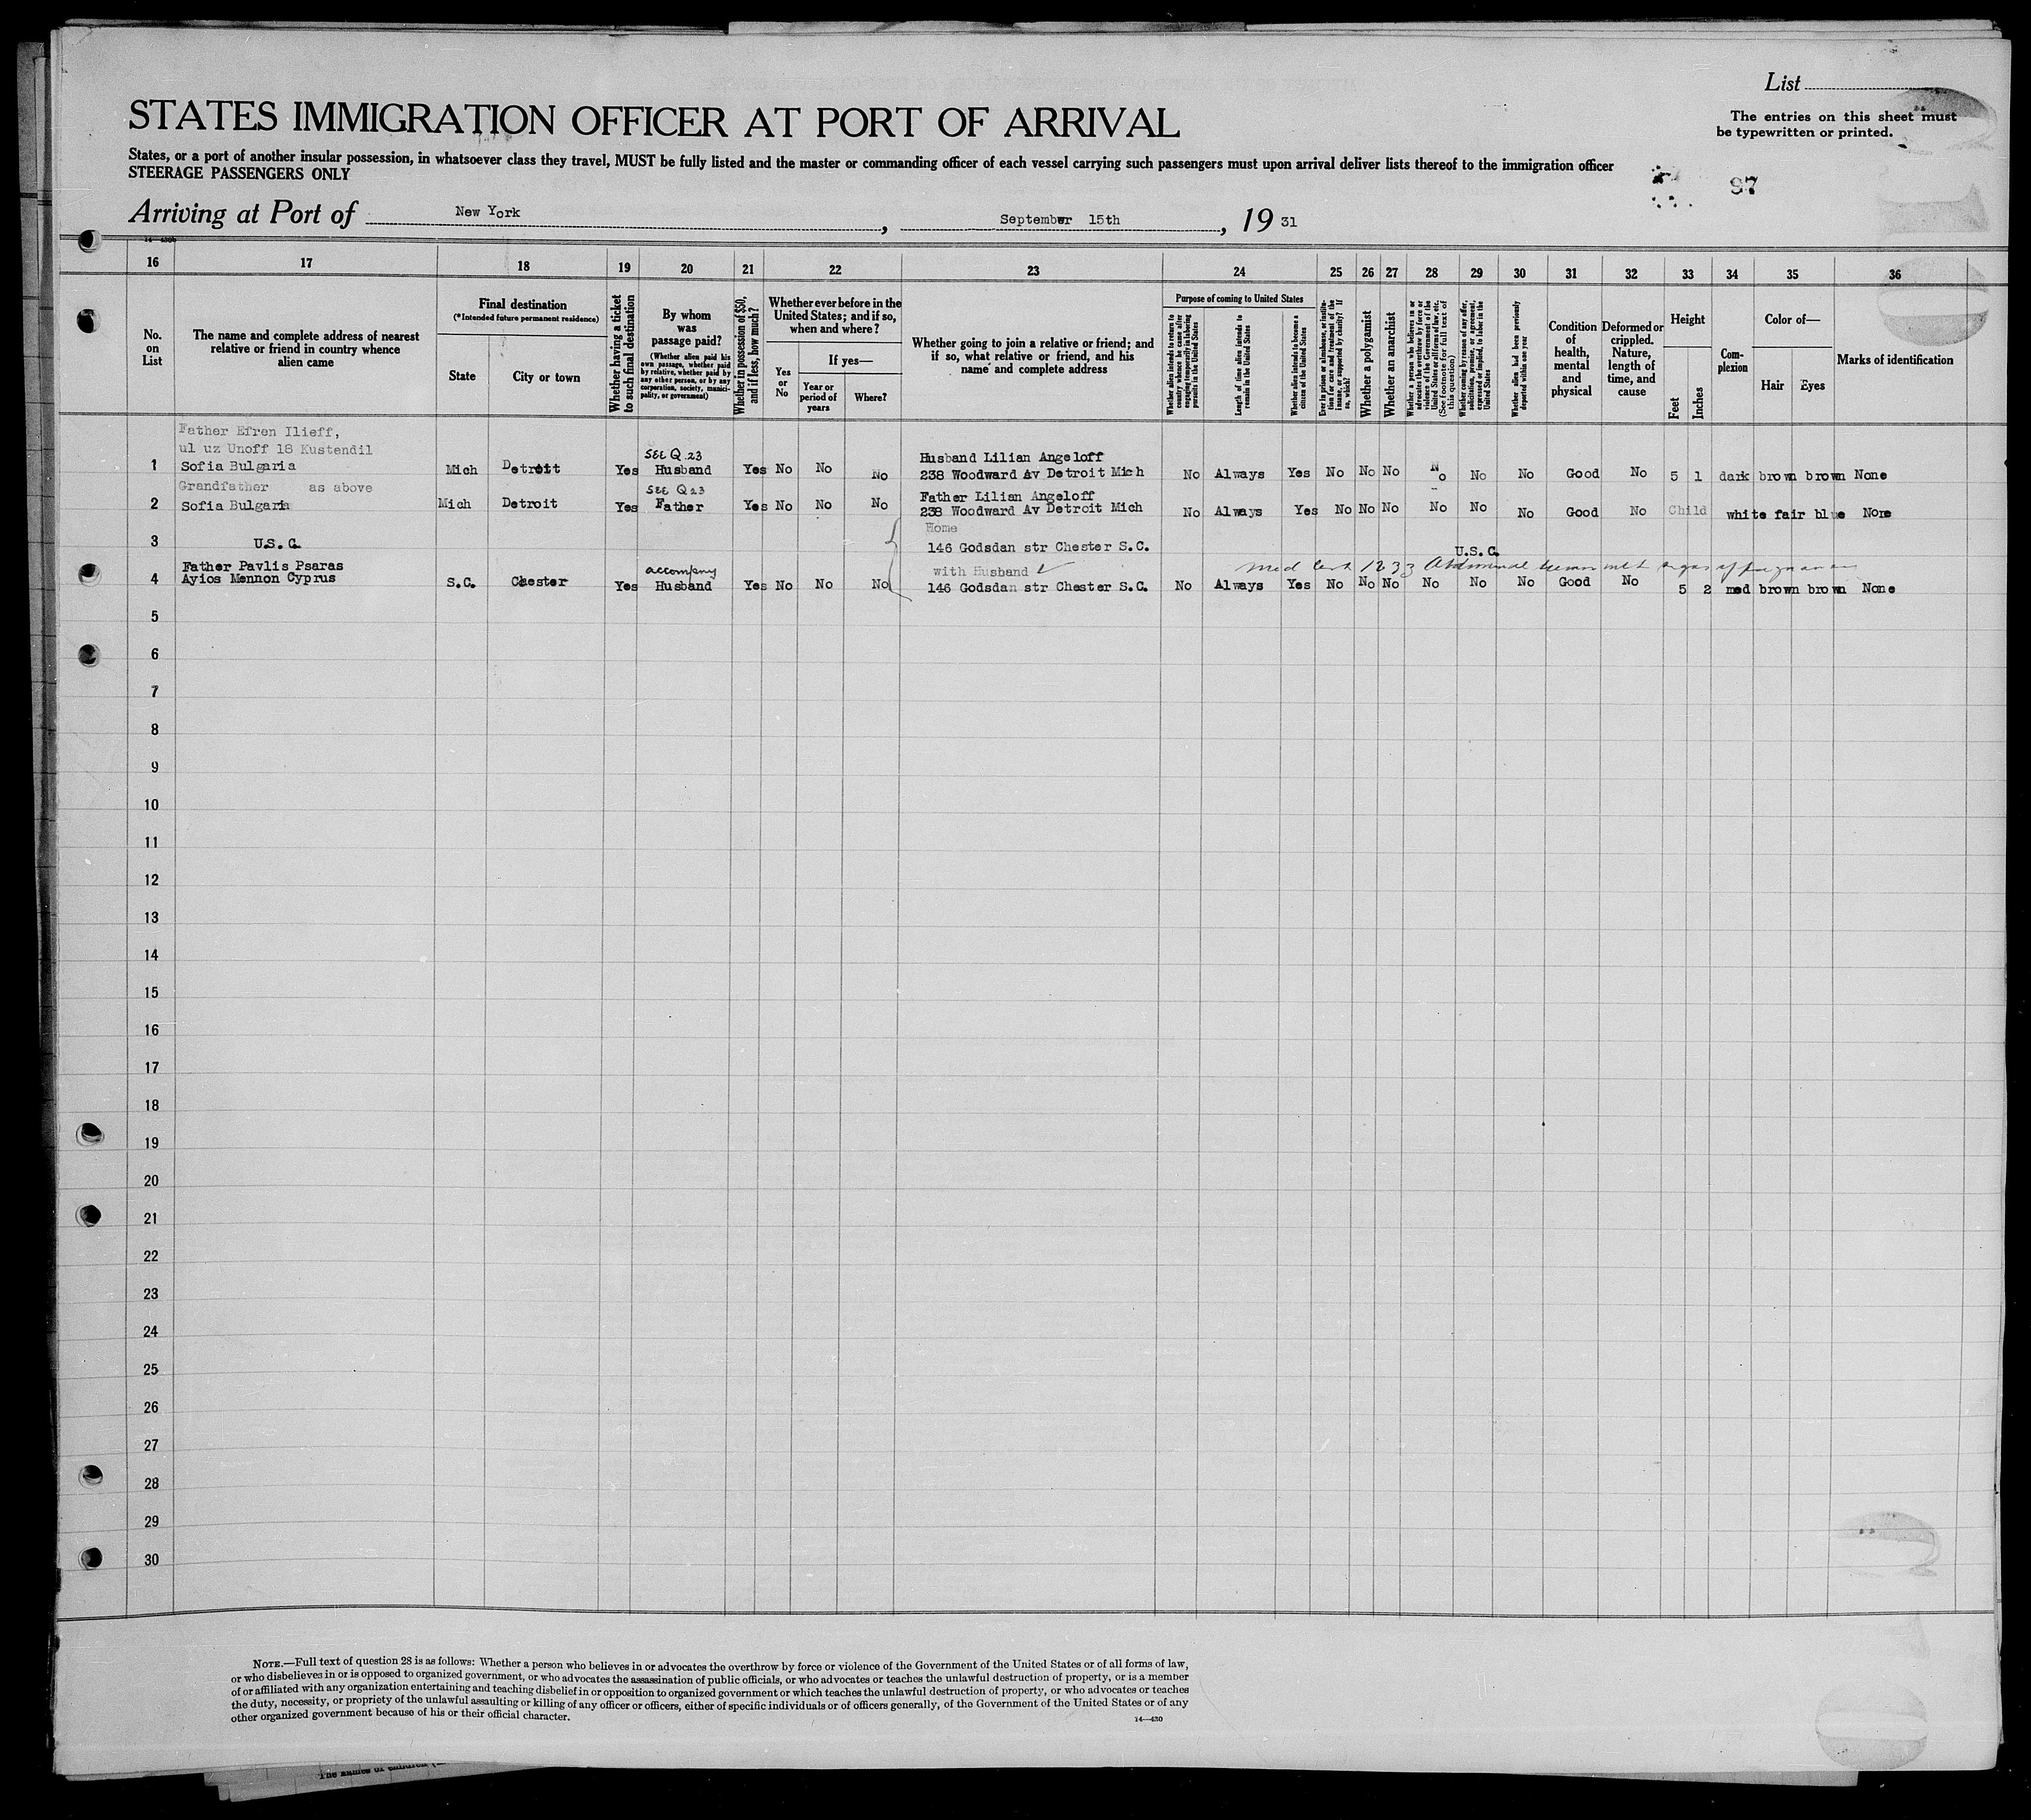 List
STATES IMMIGRATION OFFICER AT PORT OF ARRIVAL
The entries on this sheet must
be typewritten or printed.
States, or a port of another insular possession, in whatsoever class they travel, MUST be fully listed and the master or commanding officer of each vessel carrying such passengers must upon arrival deliver lists thereof to the immigration officer
STEERAGE PASSENGERS ONLY
97
Arriving at Port of New York, September 15th, 1931
16 17 18 19 20 21 22 23 24 25 26 27 28 29 30 31 32 33 34 35 36
No. on List
The name and complete address of nearest relative or friend in country whence alien came
Final destination
(*Intended future permanent residence)
State
City or town
Whether having a ticket to such final destination
By whom was passage paid?
(Whether alien paid his own passage, whether paid by relative, whether paid by any other person, or by any corporation, society, municipality, or government)
Whether in possession of $50, and if less, how much?
Whether ever before in the United States; and if so, when and where?
Yes or No
If yes—
Year or period of years
Where?
Whether going to join a relative or friend; and if so, what relative or friend, and his name and complete address
Purpose of coming to United States
Whether alien intends to return to country whence he came after engaging temporarily in laboring pursuits in the United States
Length of time alien intends to remain in the United States
Whether alien intends to become a citizen of the United States
Ever in prison or almshouse, or institution for care and treatment of the insane, or supported by charity? If so, which?
Whether a polygamist
Whether an anarchist
Whether a person who believes in or advocates the overthrow by force or violence of the Government of the United States or all forms of law, etc. (See footnote for full text of this question)
Whether coming by reason of any offer, solicitation, promise, or agreement, expressed or implied, to labor in the United States
Whether alien had been previously deported within one year
Condition of health, mental and physical
Deformed or crippled. Nature, length of time, and cause
Height
Feet
Inches
Complexion
Color of—
Hair
Eyes
Marks of identification
Father Efren Ilieff,
ul uz Unoff 18 Kustendil
SEE Q.23
Husband Lilian Angeloff
1 Sofia Bulgaria Mich Detroit Yes Husband Yes No No No 238 Woodward Av Detroit Mich No Always Yes No No No No No No Good No 5 1 dark brown brown None
Grandfather as above
SEE Q23
Father Lilian Angeloff
2 Sofia Bulgaria Mich Detroit Yes Father Yes No No No 238 Woodward Av Detroit Mich No Always Yes No No No No No No Good No Child white fair blue None
Home
3 U.S.C. 146 Godsdan str Chester S.C. U.S.C.
Father Pavlis Psaras
accompany
with Husband
med cert 1233 Abdominal
4 Ayios Mennon Cyprus S.C. Chester Yes Husband Yes No No No 146 Godsdan str Chester S.C. No Always Yes No No No No No No Good No 5 2 med brown brown None
5
6
7
8
9
10
11
12
13
14
15
16
17
18
19
20
21
22
23
24
25
26
27
28
29
30
NOTE.—Full text of question 28 is as follows: Whether a person who believes in or advocates the overthrow by force or violence of the Government of the United States or of all forms of law,
or who disbelieves in or is opposed to organized government, or who advocates the assassination of public officials, or who advocates or teaches the unlawful destruction of property, or is a member
of or affiliated with any organization entertaining and teaching disbelief in or opposition to organized government or which teaches the unlawful destruction of property, or who advocates or teaches
the duty, necessity, or propriety of the unlawful assaulting or killing of any officer or officers, either of specific individuals or of officers generally, of the Government of the United States or of any
other organized government because of his or their official character.
14—430